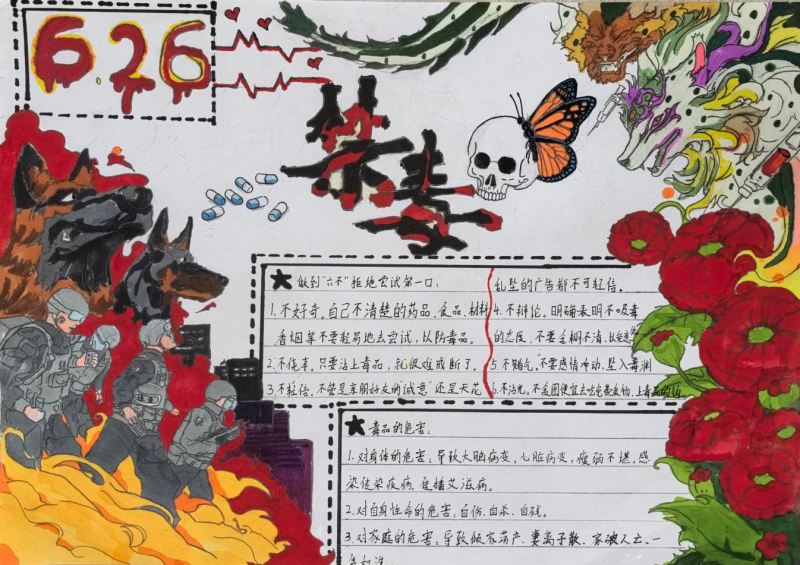 6.26
禁毒
★ 做到"六不"拒绝尝试第一口:
1.不好奇。自己不清楚的药品、食品、材料
香烟等不要轻易地去尝试,以防毒品。
2.不侥幸。只要沾上毒品,就很难戒断了。
3.不轻信。不管是亲朋好友的诚意 还是天花
乱坠的广告都不可轻信。
4.不辩论。明确表明不吸毒
的态度,不要含糊不清,以免
5.不赌气。不要感情冲动,坠入毒渊
6.不沾光。不贪图便宜去吃
★ 毒品的危害:
1.对身体的危害:导致大脑病变,心脏病变,瘦弱不堪,感
染传染疫病,
艾滋病。
2.对自身性命的危害:自伤、自杀、自残。
3.对家庭的危害:导致倾家荡产、妻离子散、家破人亡、一